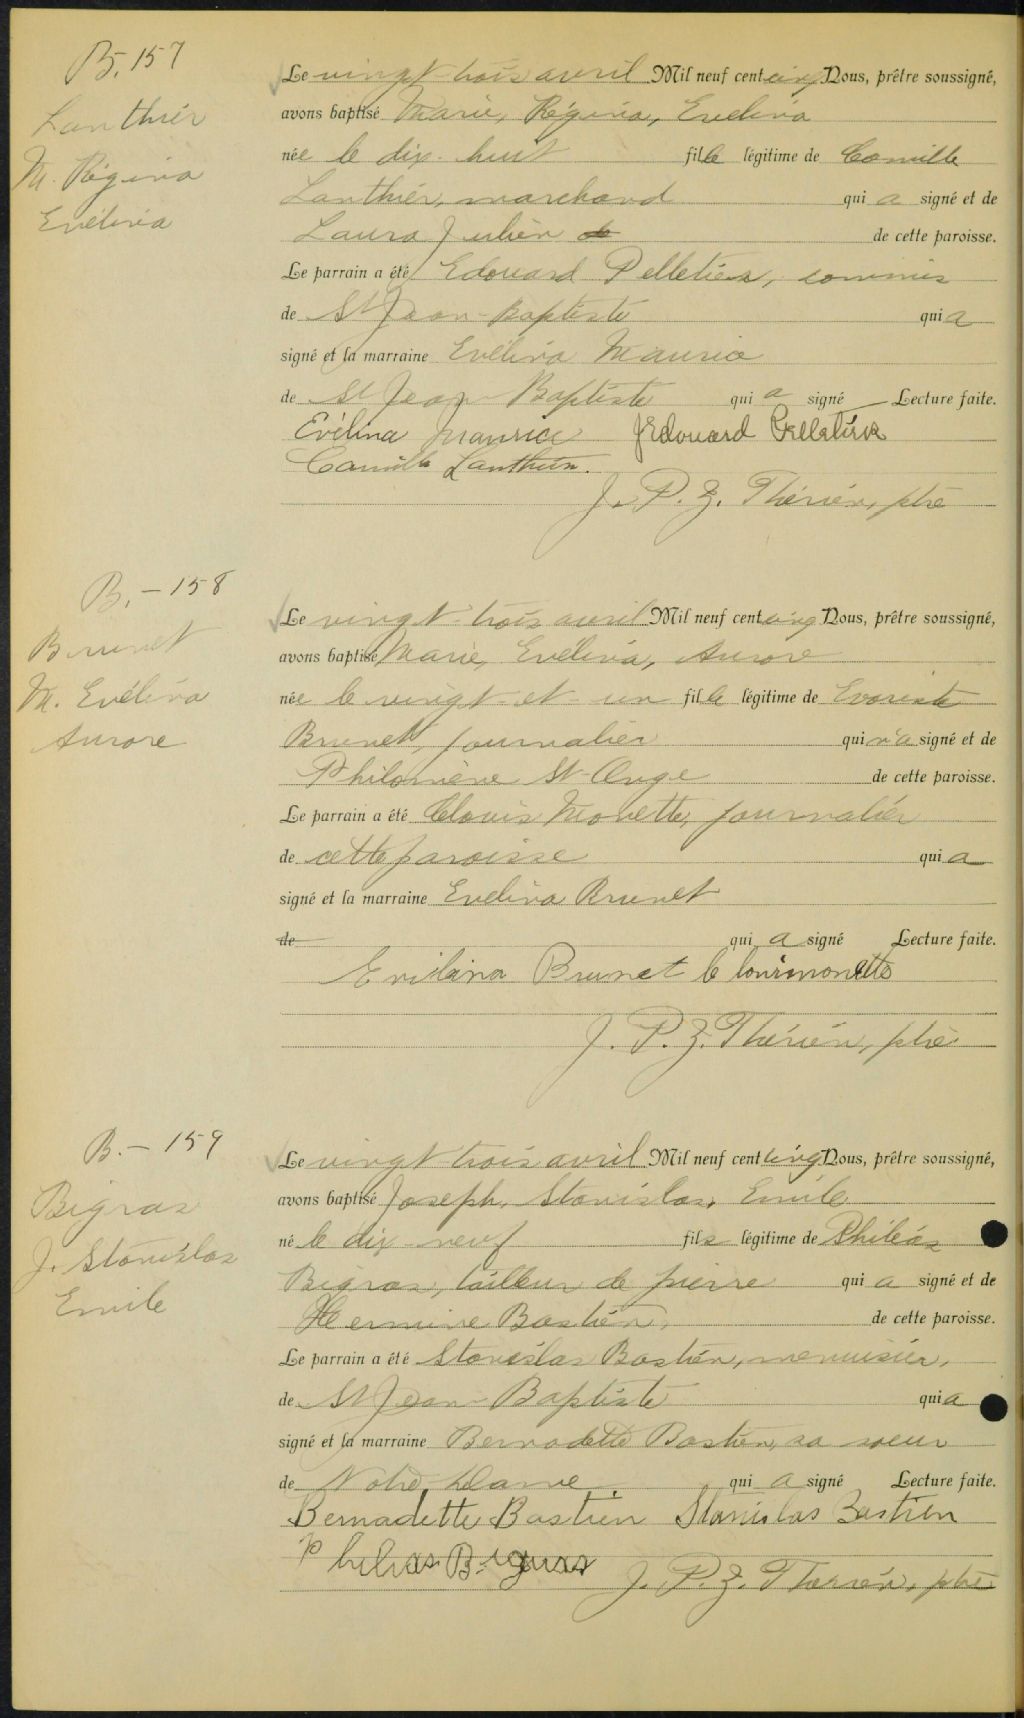 B. 157
Lanthier
M. Régina
Evélina
Le vingt-trois avril Mil neuf cent cinq Nous, prêtre soussigné,
avons baptisé Marie, Régina, Evelina
née le dix-huit fille légitime de Camille
Lanthier, marchand qui a signé et de
Laura Julien de cette paroisse.
Le parrain a été Edouard Pelletier, commis
de St Jean-Baptiste qui a
signé et la marraine Evélina Maurice
de St Jean-Baptiste qui a signé Lecture faite.
Evélina Maurice J Edouard Pelletier
Camille Lanthier.
J. P. Z. Thérien, ptre
B. - 158
Brunet
M. Evélina
Aurore
Le vingt-trois avril Mil neuf cent cinq Nous, prêtre soussigné,
avons baptisé Marie, Evélina, Aurore
née le vingt-et-un fille légitime de Evariste
Brunet, journalier qui n'a signé et de
Philomène St-Onge de cette paroisse.
Le parrain a été Clovis Monette, journalier
de cette paroisse qui a
signé et la marraine Evelina Brunet
de qui a signé Lecture faite.
Evilina Brunet
J. P. Z. Thérien, ptre
B. - 159
Bigras
J. Stanislas
Emile
Le vingt-trois avril Mil neuf cent cinq Nous, prêtre soussigné,
avons baptisé Joseph, Stanislas, Emile
né le dix-neuf fils légitime de Philéas
Bigras, tailleur de pierre qui a signé et de
Hermine Bastien, de cette paroisse.
Le parrain a été Stanislas Bastien, menuisier,
de St Jean-Baptiste qui a
signé et la marraine Bernadette Bastien, sa soeur
de Notre-Dame. qui a signé Lecture faite.
Bernadette Bastien Stanislas Bastien
Philias Bigras J. P. Z. Therién, ptre